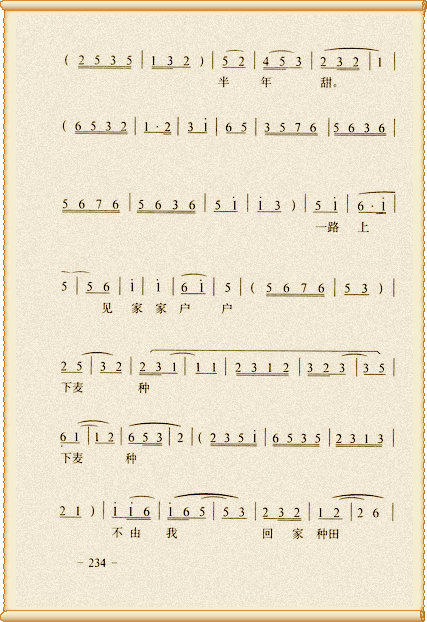 ( 2 5 3 5 | 1 3 2 ) | 5 2 | 4 5 3 | 2 3 2 | 1
半 年 甜。
( 6 5 3 2 | 1 · 2 | 3 i | 6 5 | 3 5 7 6 | 5 6 3 6 |
5 6 7 6 | 5 6 3 6 | 5 i | i 3 ) | 5 i | 6 · i |
一路 上
5 | 5 6 | i | i | 6 i | 5 | ( 5 6 7 6 | 5 3 ) |
见 家 家 户 户
2 5 | 3 2 | 2 3 1 | 1 1 | 2 3 1 2 | 3 2 3 | 3 5 |
下麦 种
6 1 | 1 2 | 6 5 3 | 2 | ( 2 3 5 i | 6 5 3 5 | 2 3 1 3 |
下麦 种
2 1 ) | i i 6 | i 6 5 | 5 3 | 2 3 2 | 1 2 | 2 6 |
不 由 我 回 家 种田
- 234 -